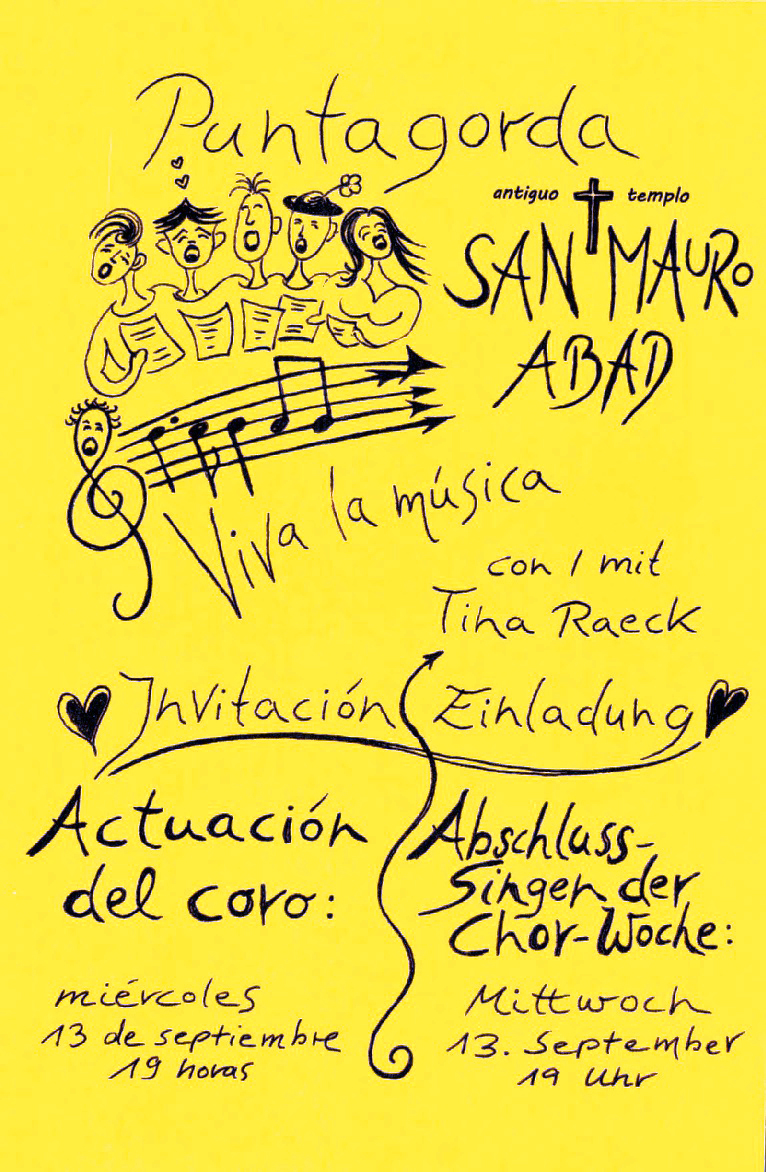 Puntagorda
antiguo templo
SAN MAURO
ABAD
Viva la música
con / mit
Tina Raeck
Invitación
Einladung
Actuación
del coro:
miércoles
13 de septiembre
19 horas
Abschluss-
Singen der
Chor-Woche:
Mittwoch
13. September
19 Uhr